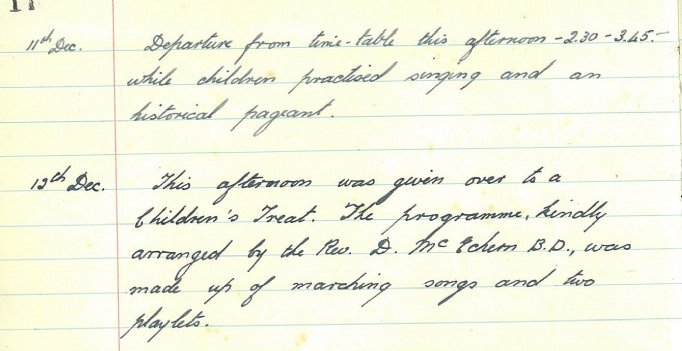 11th Dec. Departure from time-table this afternoon - 2.30 - 3.45. -
while children practised singing and an
historical pageant.
13th Dec. This afternoon was given over to a
Children's Treat. The programme, kindly
arranged by the Rev. D. Mc Echern B.D., was
made up of marching songs and two
playlets.